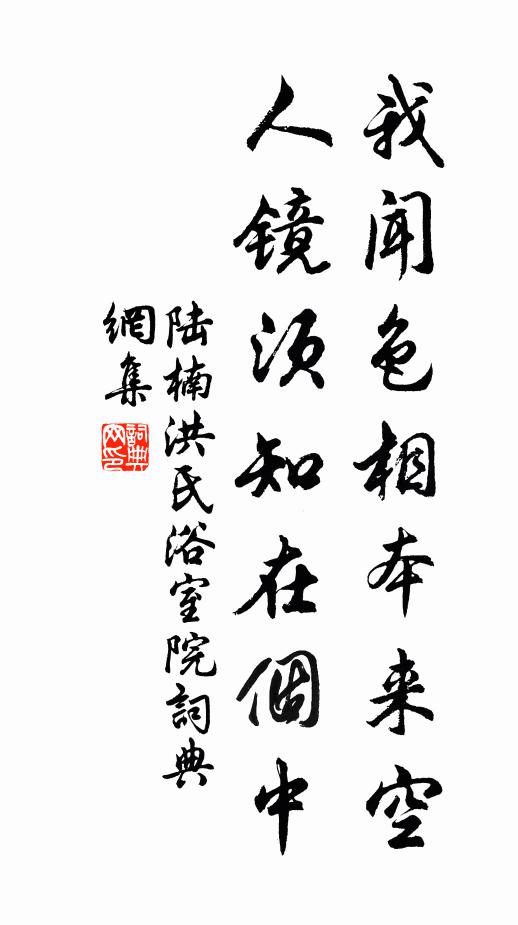 我闻色相本来空
人镜须知在個中
陆楠洪氏浴室院詞典
網集
詞典網印